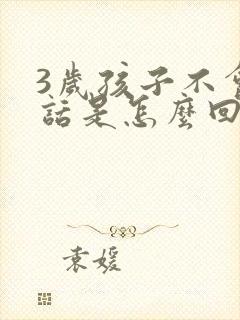 3歲孩子不會
話是怎麼回
袁媛